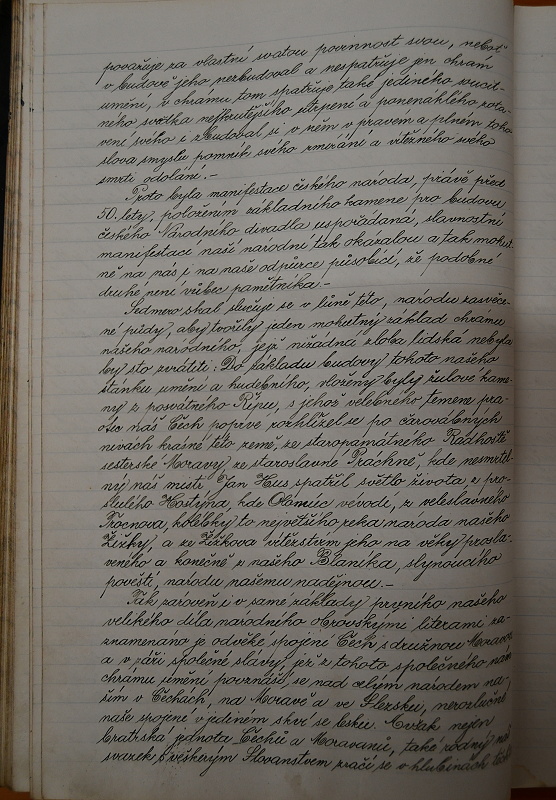 považuje za vlastní svatou povinnost svou, neboť
v budově jeho nezbudoval a nespatřuje jen chrám
umění, v chrámu tom spatřuje také jediného
ného svědka nejkrutějšího utrpení a ponenáhlého zota-
vení svého i zbudoval si v něm v pravém a plném toho
slova smyslu pomník svého zmírání a vítězného svého
smrti odolání.-
Proto byla manifestace českého národa, právě před
50. lety, položením základního kamene pro budovu
českého Národního divadla uspořádaná, slavnostní
manifestací naší národní tak okázalou a tak mohut
ně na nás i na naše odpůrce působící, že podobné
druhé není vůbec pamětníka.-
Sedmero skal slučuje se v lůně této, národu zasvěce-
né půdy, aby tvořily jeden mohutný základ chrámu
našeho národního, jejž nižádná zloba lidská nebyla
by sto zvrátiti; Do základu budovy tohoto našeho
stánku umění a hudebního, vloženy byly žulové kame-
ny z posvátného Řípu, s jehož velebného temene pra-
otec náš Čech poprvé rozhlížel se po čarovábných
nivách krásné této země, ze staropamátného Radhoště
sesterské Moravy, ze staroslavné Práchně, kde nesmrtel
ný náš mistr Jan Hus spatřil světlo života, z pro-
slulého Hostýna, kde Olomúc vévodí, z veleslavného
Trocnova, kolébky to největšího reka národa našeho
Žižky, a ze Žižkova vítězstvím jeho na věky prosla-
veného a konečně z našeho Blaníka, slynoucího
pověstí, národu našemu nadějnou.-
Tak zároveň i v samé základy prvního našeho
velikého díla národního obrovskými literami za-
znamenáno je odvěké spojení Čech s družnou Moravou
a v záři společné slávy, jež z tohoto společného nám
chrámu umění povznáší se nad celým národem na-
ším v Čechách, na Moravě a ve Slezsku, nerozlučně
naše spojené v jediném skví se lesku. Avšak nejen
bratrská jednota Čechů a Moravanů, také rodný náš
svazek s veškerým Slovanstvem zračí se v hlubinách